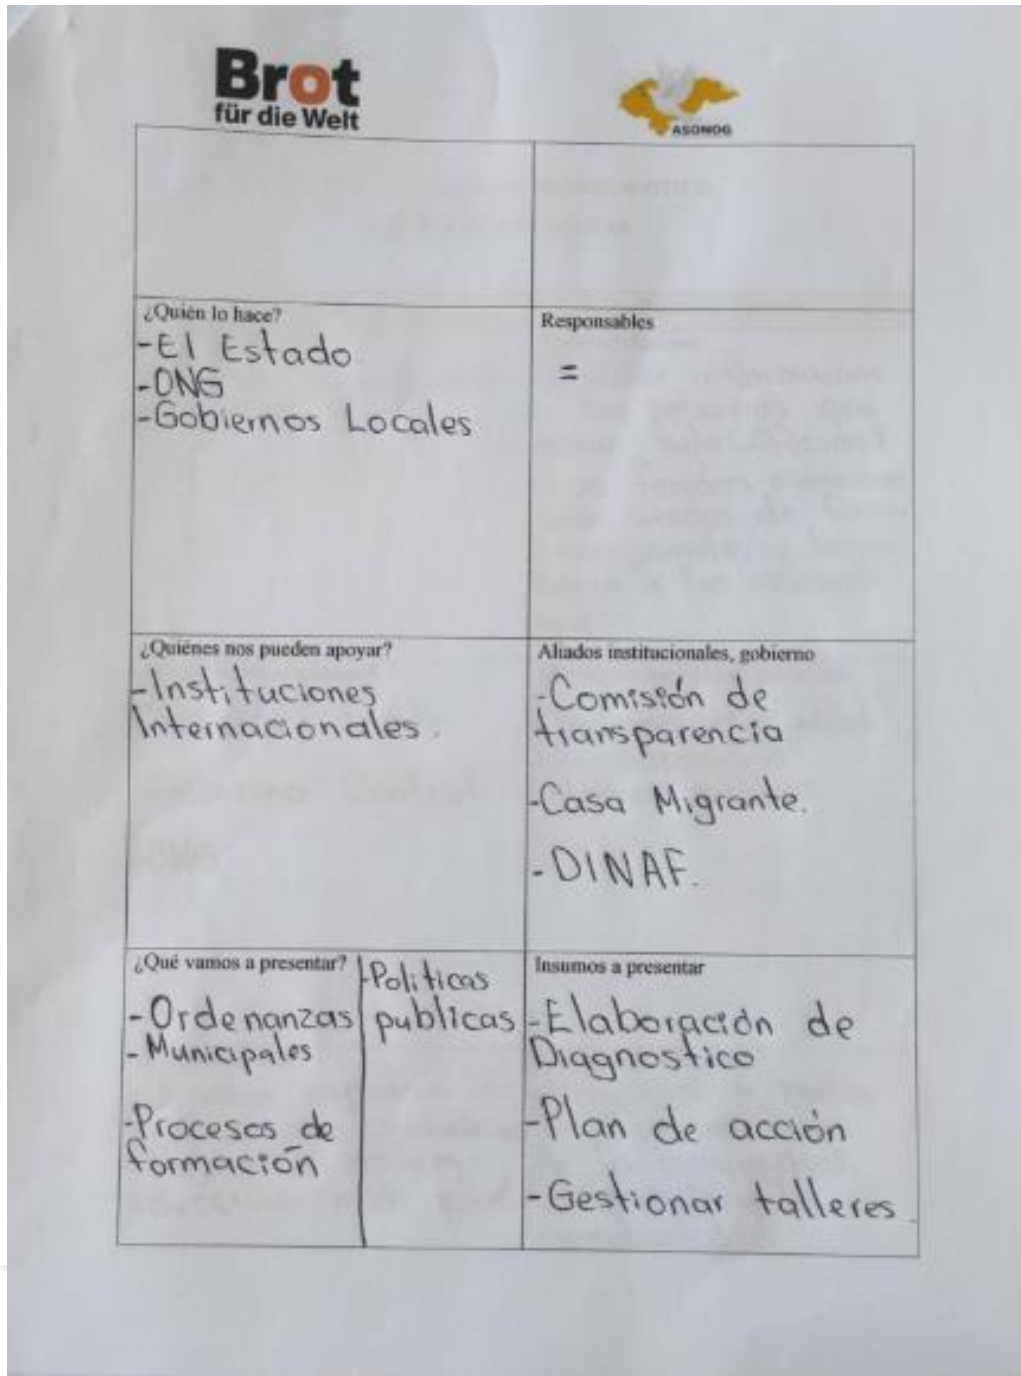 Brot
für die Welt
ASONOG
¿Quién lo hace?
-El Estado
-ONG
-Gobiernos Locales
Responsables
=
¿Quiénes nos pueden apoyar?
-Instituciones
Internacionales.
Aliados institucionales, gobierno
-Comisión de
transparencia
-Casa Migrante.
-DINAF.
¿Qué vamos a presentar?
-Ordenanzas
-Municipales
-Procesos de
formación
-Politicas
publicas
Insumos a presentar
-Elaboración de
Diagnostico
-Plan de acción
-Gestionar talleres.